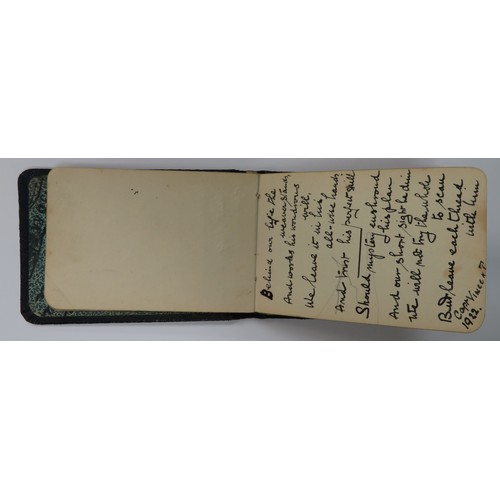 Behind our life the
weaver stands,
And works his wondrous
will.
We leave it in his
all-wise hands,
And trust his perfect skill
Should mystery enshroud
his plan
And our short sight be dim
We will not try the whole
to scan
But leave each thread
with him
1922.